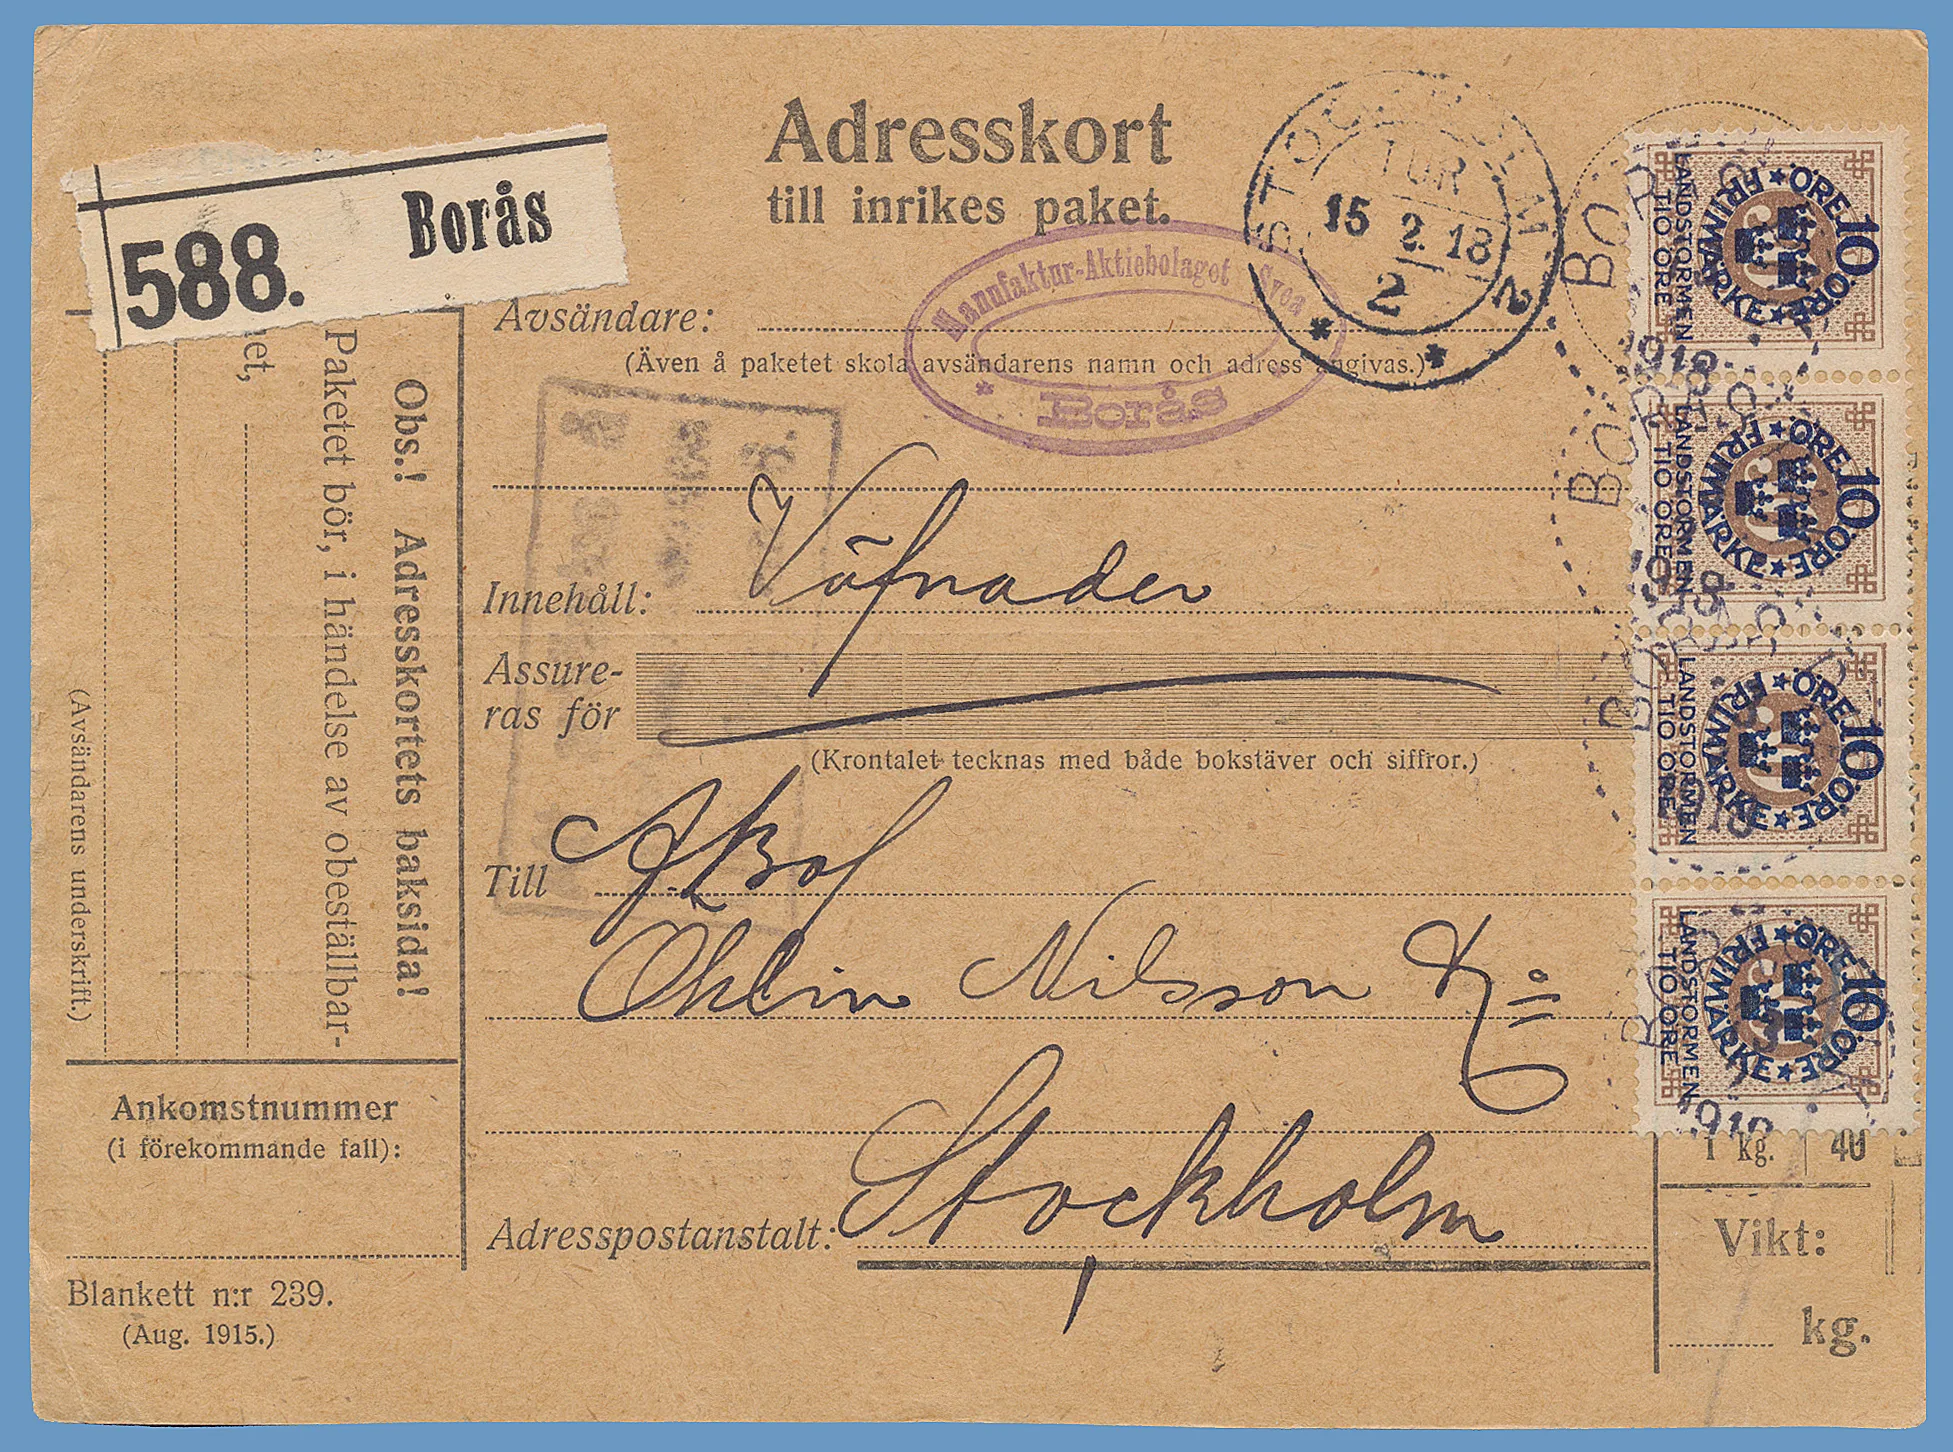 Adresskort
till inrikes paket.
588. Borås
STOCKHOLM 2
TUR
15 2. 18
2
Manufaktur-Aktiebolaget Svea
Borås
Avsändare:
(Även å paketet skola avsändarens namn och adress angivas.)
Innehåll: Väfnader
Assure-
ras för
(Krontalet tecknas med både bokstäver och siffror.)
Till AKBol
Ohlin Nilsson & Co
Adresspostanstalt: Stockholm
Obs.! Adresskortets baksida!
Paketet bör, i händelse av obeställbar-
et,
(Avsändarens underskrift.)
Ankomstnummer
(i förekommande fall):
Blankett n:r 239.
(Aug. 1915.)
10 ÖRE ★ FRIMÄRKE ★ ÖRE
LANDSTORMEN
TIO ÖRE
BORÅS
1918
10 ÖRE ★ FRIMÄRKE ★ ÖRE
LANDSTORMEN
TIO ÖRE
BORÅS
1918
10 ÖRE ★ FRIMÄRKE ★ ÖRE
LANDSTORMEN
TIO ÖRE
1918
10 ÖRE ★ FRIMÄRKE ★ ÖRE
LANDSTORMEN
TIO ÖRE
1918
1 kg. 40
Vikt:
kg.